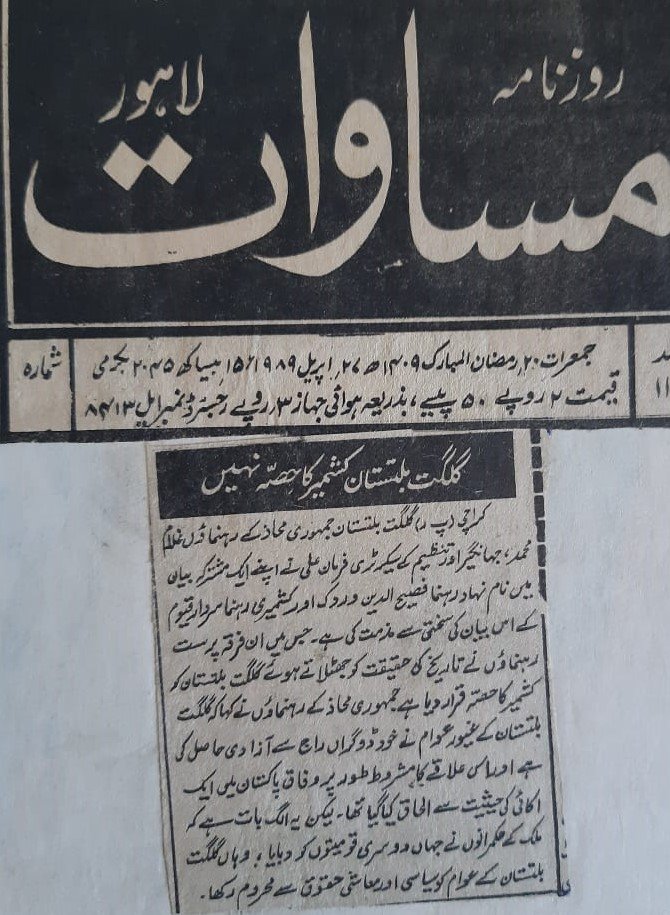 روزنامہ
مساوات
لاہور
جمعرات ۲۰، رمضان المبارک ۱۴۰۹ھ ۲۷، اپریل ۱۹۸۹ء ۱۵، بیساکھ ۲۰۴۵ بکرمی
شمارہ
قیمت ۲ روپے ۵۰ پیسے، بذریعہ ہوائی جہاز ۳، روپے رجسٹرڈ نمبر ایل ۸۴۱۳
گلگت بلتستان کشمیر کا حصّہ نہیں
کراچی (پ ر) گلگت بلتستان جمہوری محاذ کے رہنماؤں غلام
محمد، جہانگیر اور تنظیم کے سیکرٹری فرمان علی نے اپنے ایک مشترکہ بیان
میں نام نہاد رہنما فصیح الدین وردک اور کشمیری رہنما سردار قیوم
کے اس بیان کی سختی سے مذمت کی ہے۔ جس میں ان فرقہ پرست
رہنماؤں نے تاریخ کی حقیقت کو جھٹلاتے ہوئے گلگت بلتستان کو
کشمیر کا حصہ قرار دیا ہے جمہوری محاذ کے رہنماؤں نے کہا کہ گلگت
بلتستان کے غیور عوام نے خود ڈوگراں راج سے آزادی حاصل کی
ہے اور اس علاقے کا مشروط طور پر وفاق پاکستان میں ایک
اکائی کی حیثیت سے الحاق کیا گیا تھا۔ لیکن یہ الگ بات ہے کہ
ملک کے حکمرانوں نے جہاں دوسری قومیتوں کو دبایا، وہاں گلگت
بلتستان کے عوام کو سیاسی اور معاشی حقوق سے محروم رکھا۔